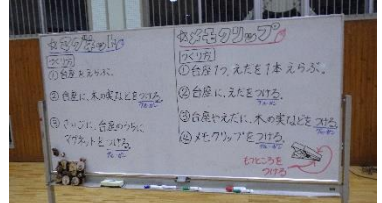 ☆マグネット
つくり方
①台座をえらぶ。
②台座に、木の実などをつける。
グルーガン
③さいごに、台座のうらに
マグネットをつける。
グルーガン
☆メモクリップ
つくり方
①台座1つ、えだを1本えらぶ。
②台座に、えだをつける。
グルーガン
③台座やえだに、木の実などをつける。
グルーガン
④メモクリップをつける。
グルーガン
もつところを
つける